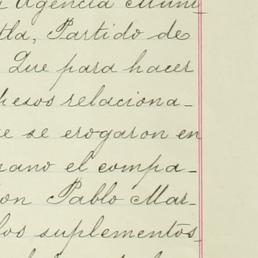 Agencia Muni
tla, Partido de
Que para hacer
pesos relaciona-
se se erogaron en
mano el compa-
on Pablo Mar-
los suplementos